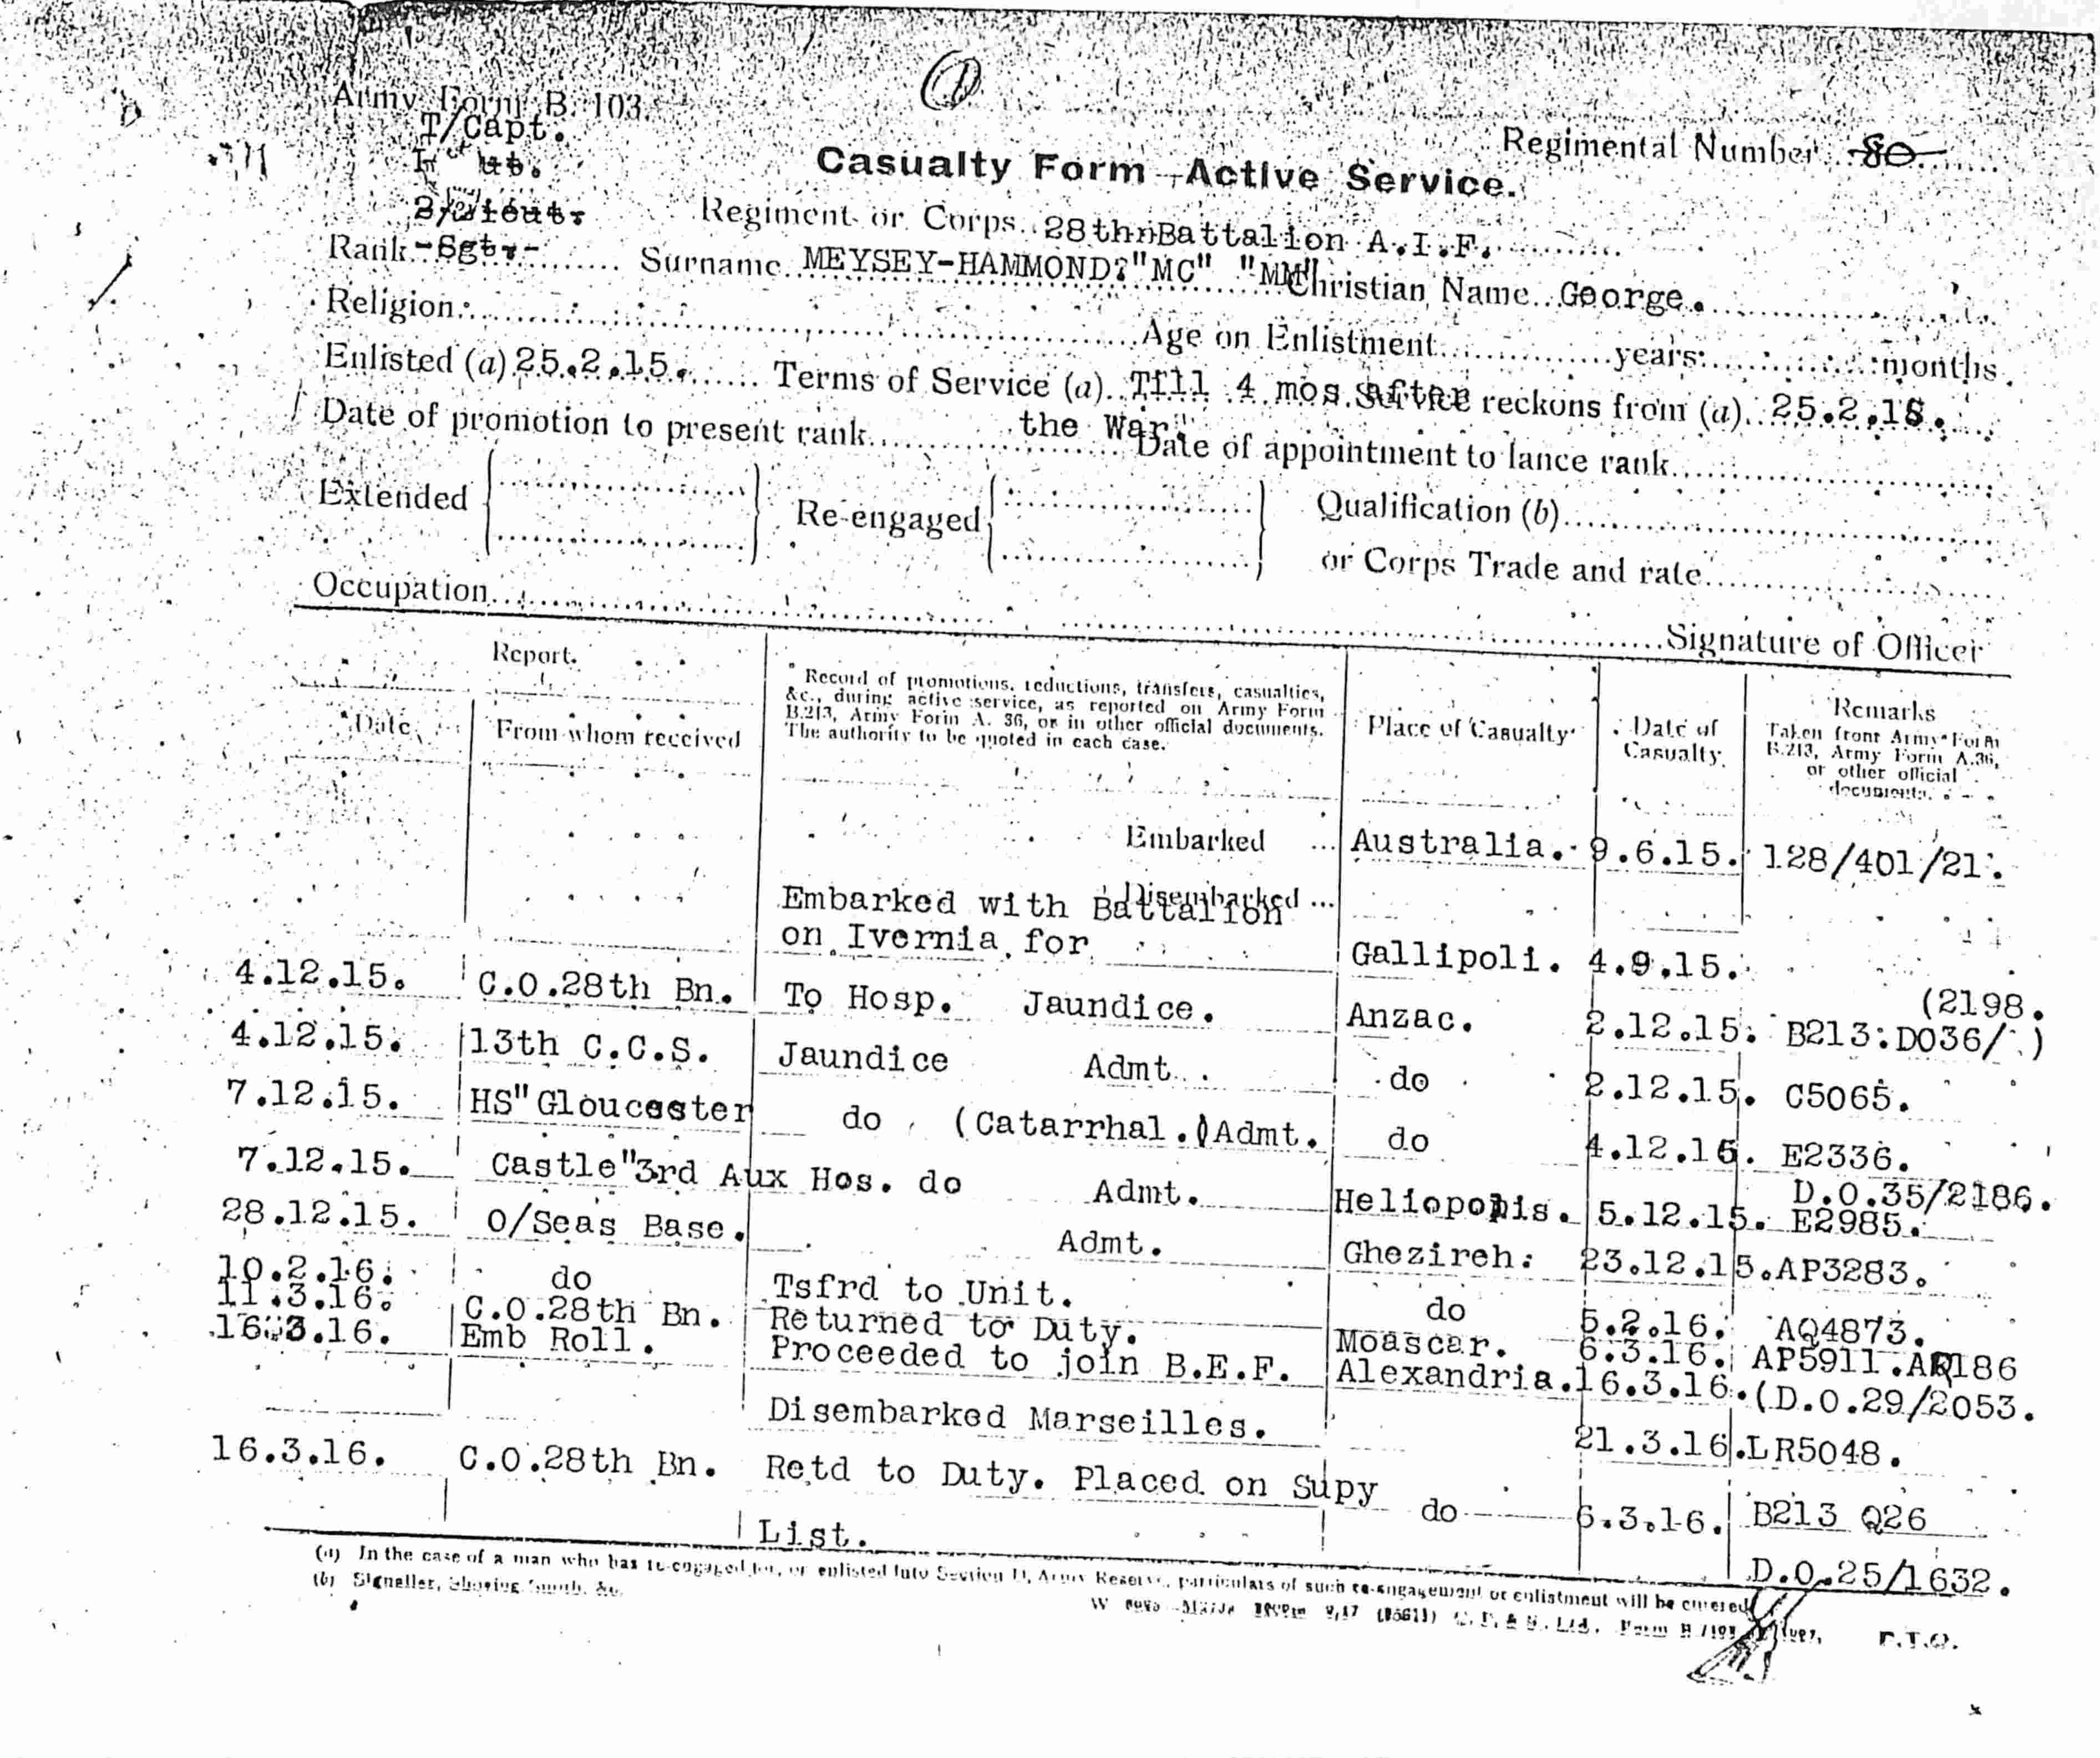 Army Form B. 103.
T/Capt.
2/Lieut.
Regimental Number 80
Casualty Form - Active Service.
Regiment or Corps 28thnBattalion A.I.F.
Rank Sgt.
Surname MEYSEY-HAMMOND "MC" "MM" Christian Name George.
Religion
Age on Enlistment years months.
Enlisted (a) 25.2.15. Terms of Service (a) Till 4 mos. after Service reckons from (a) 25.2.15.
the War.
Date of promotion to present rank Date of appointment to lance rank
Extended Re-engaged Qualification (b)
or Corps Trade and rate
Occupation
Signature of Officer
Report.
Date. From whom received
Record of promotions, reductions, transfers, casualties, &c., during active service, as reported on Army Form B.213, Army Form A. 36, or in other official documents. The authority to be quoted in each case.
Place of Casualty
Date of Casualty.
Remarks
Taken from Army Form B.213, Army Form A.36, or other official documents.
Embarked ... Australia. 9.6.15. 128/401/21.
Disembarked ...
Embarked with Battalion
on Ivernia for Gallipoli. 4.9.15.
(2198.
4.12.15. C.O.28th Bn. To Hosp. Jaundice. Anzac. 2.12.15. B213:DO36/ )
4.12.15. 13th C.C.S. Jaundice Admt. do 2.12.15. C5065.
7.12.15. HS"Gloucester do (Catarrhal.) Admt. do 4.12.15. E2336.
D.O.35/2186.
7.12.15. Castle"3rd Aux Hos. do Admt. Heliopolis. 5.12.15. E2985.
28.12.15. O/Seas Base. Admt. Ghezireh: 23.12.15. AP3283.
10.2.16. do Tsfrd to Unit. do 5.2.16. AQ4873.
11.3.16. C.O.28th Bn. Returned to Duty. Moascar. 6.3.16. AP5911.AR186
16.3.16. Emb Roll. Proceeded to join B.E.F. Alexandria. 16.3.16. (D.O.29/2053.
Disembarked Marseilles. 21.3.16. LR5048.
16.3.16. C.O.28th Bn. Retd to Duty. Placed on Supy do 6.3.16. B213 Q26
List. D.O.25/1632.
(a) In the case of a man who has re-engaged for, or enlisted into Section D, Army Reserve, particulars of such re-engagement or enlistment will be entered
(b) Signaller, Shoeing Smith, &c.
P.T.O.